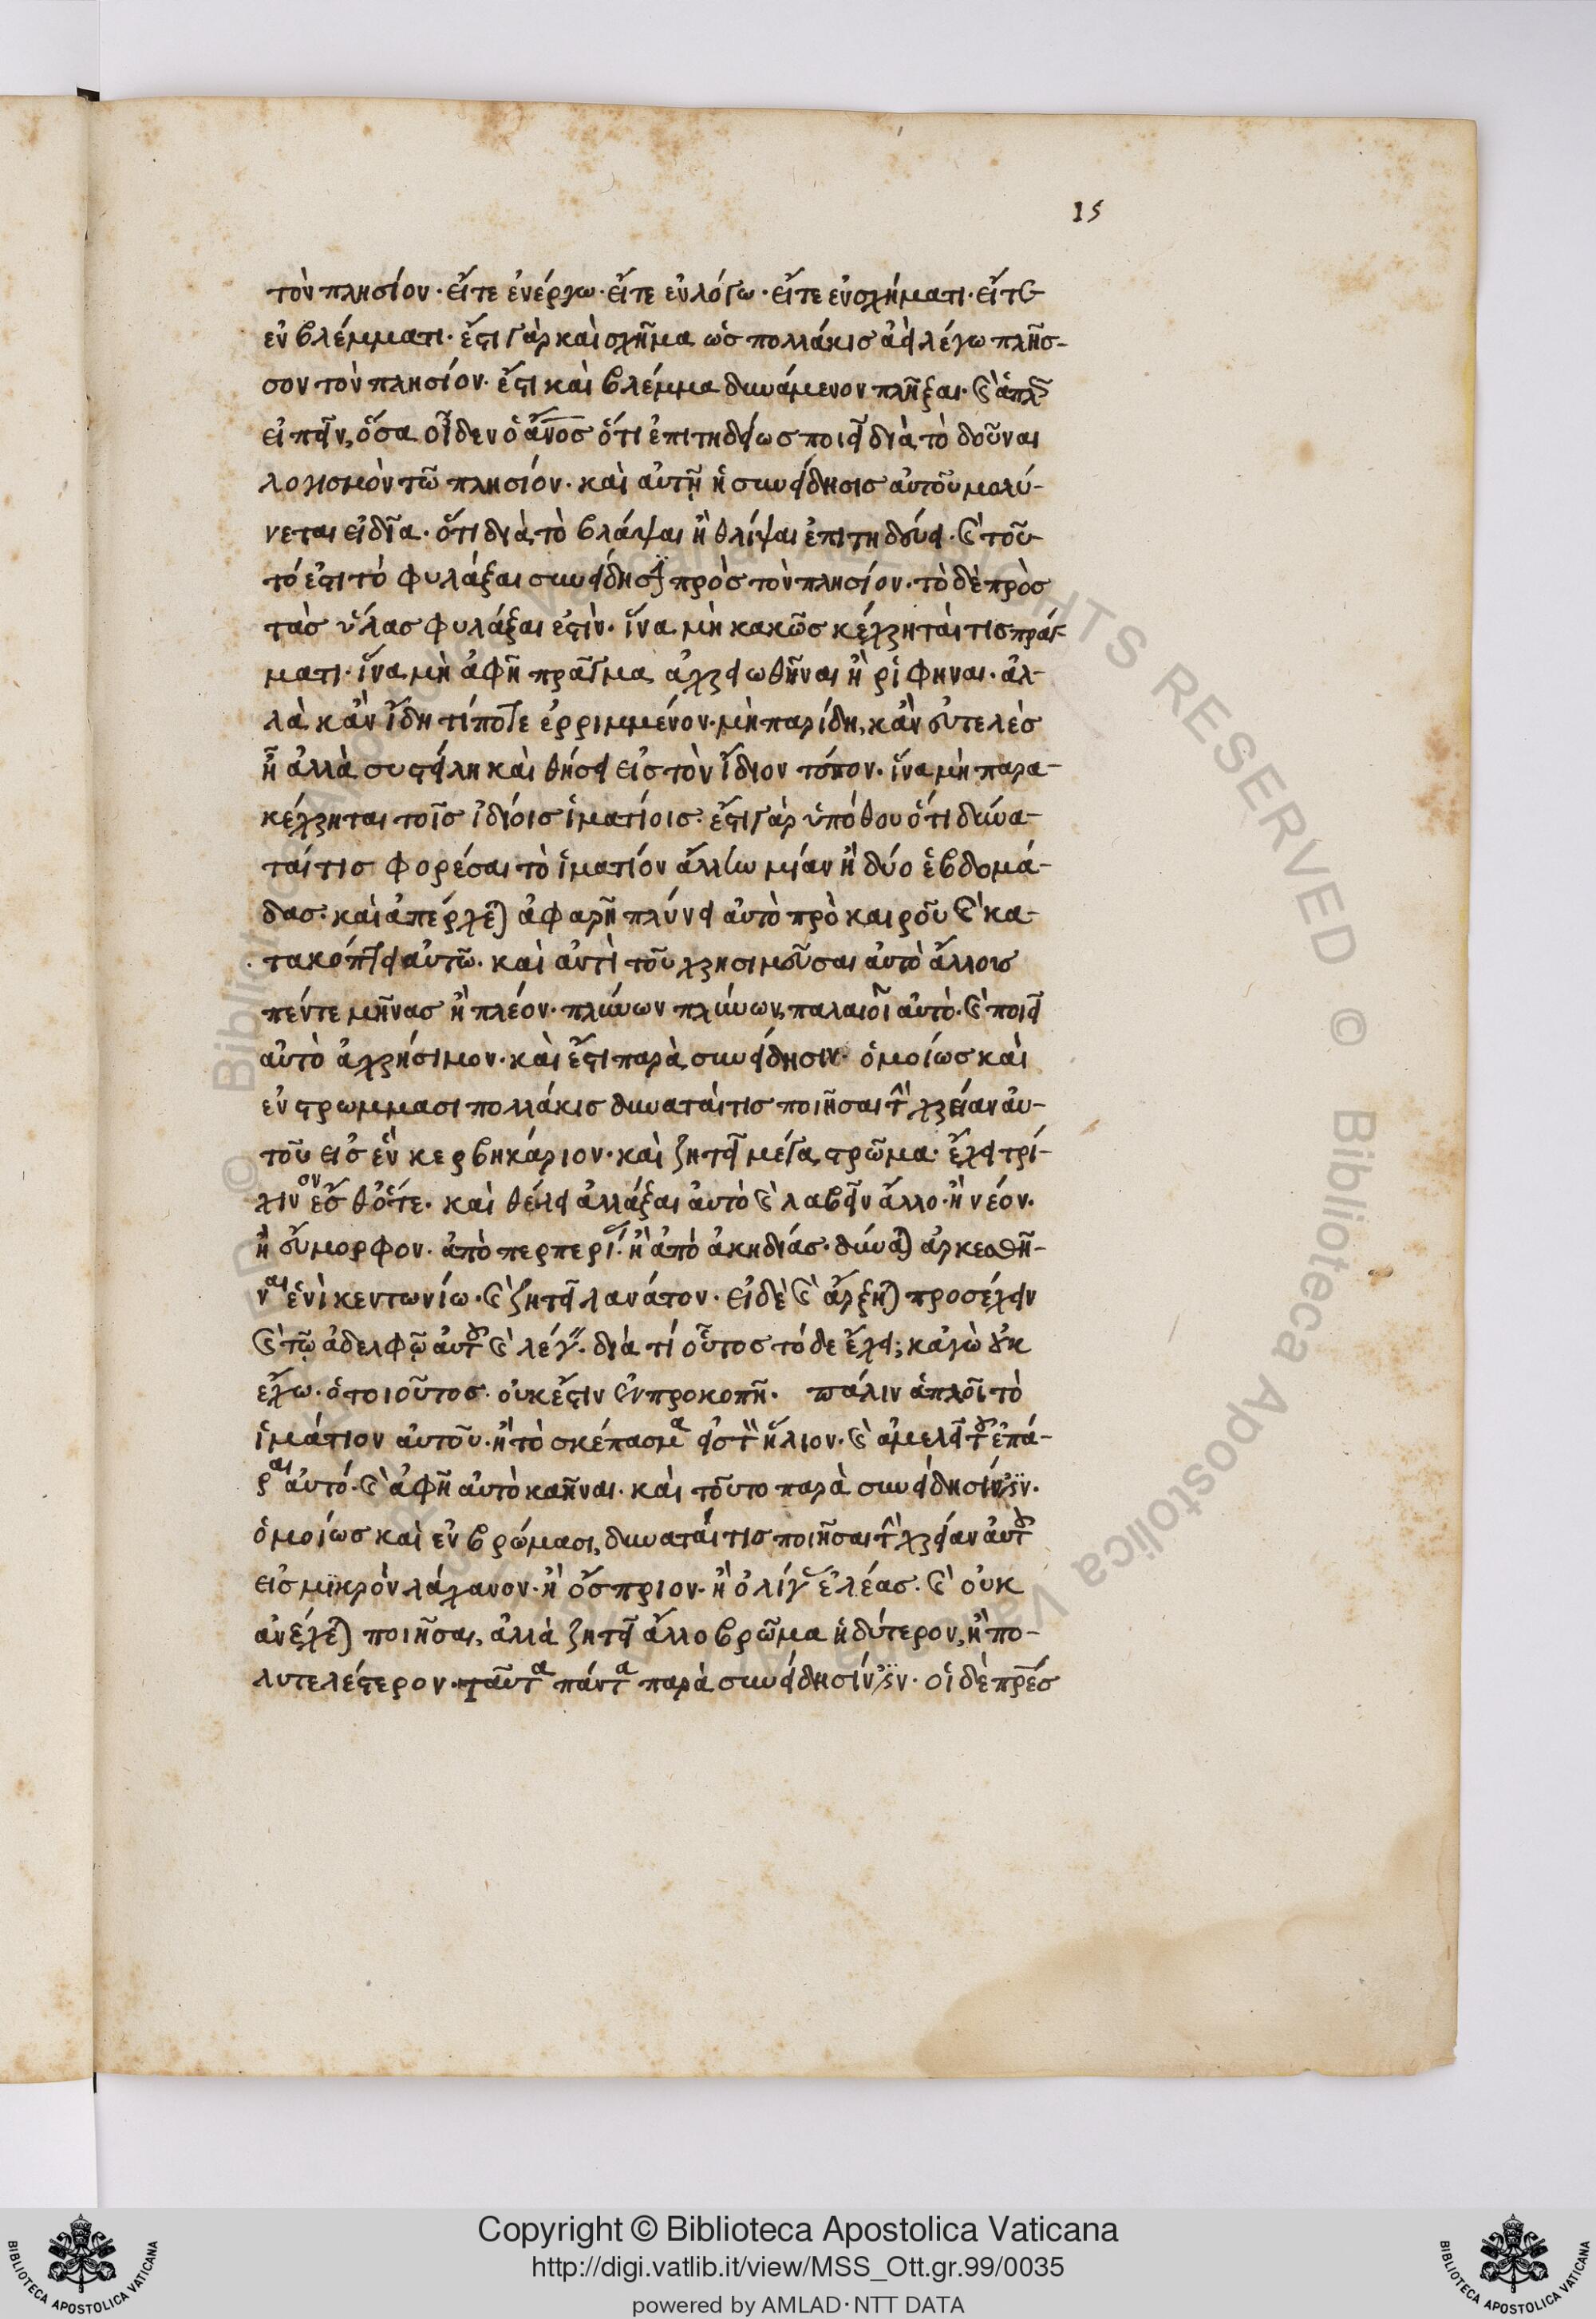 15
τὸν πλησίον· εἴτε ἐν ἔργω· εἴτε ἐν λόγω· εἴτε ἐν σχήματι· εἴτε
ἐν βλέμματι· ἔστι γὰρ καὶ σχῆμα ὡς πολλάκις ἀεὶ λέγω πλῆσ-
σον τὸν πλησίον· ἔστι καὶ βλέμμα δυνάμενον πλῆξαι· καὶ ἁπλῶς
εἰπεῖν, ὅσα οἶδεν ὁ ἄνος ὅτι ἐπιτηδείως ποιεῖ διὰ τὸ δοῦναι
λογισμὸν τῶ πλησίον· καὶ αὐτῆ ἡ συνείδησις αὐτοῦ μολύ-
νεται εἰδῖα· ὅτι διὰ τὸ βλάψαι ἢ θλίψαι ἐπιτηδεύει· καὶ τοῦ-
τό ἐστι τὸ φυλάξαι συνείδησιν πρὸς τὸν πλησίον· τὸ δὲ πρὸς
τὰς ὕλας φυλάξαι ἐστὶν· ἵνα μὴ κακῶς κέχρηταί τις πράγ-
ματι· ἵνα μὴ ἀφῆ πρᾶγμα ἀχρειωθῆναι ἢ ῥιφηναι· ἀλ-
λὰ κἂν ἴδη τίποτε ἐρριμμένον· μὴ παρίδη, κἂν εὐτελὲς
ἦ ἀλλὰ συστείλη καὶ θήσει εἰς τὸν ἴδιον τόπον· ἵνα μὴ παρα-
κέχρηται τοῖς ἰδίοις ἱματίοις· ἔστι γὰρ ὑπόθου ὅτι δύνα-
ταί τις φορέσαι τὸ ἱματίον ἄλλην μίαν ἢ δύο ἑβδομά-
δας· καὶ ἀπέρχεται ἀφαρῆ πλύνει αὐτὸ πρὸ καιροῦ καὶ κα-
τακόπτει αὐτῶ· καὶ ἀντὶ τοῦ χρησιμεῦσαι αὐτὸ ἄλλοις
πέντε μῆνας ἢ πλέον· πλύνων πλύνων, παλαιοῖ αὐτὸ· καὶ ποιεῖ
αὐτὸ ἀχρήσιμον· καὶ ἔστι παρὰ συνείδησιν· ὁμοίως καὶ
ἐν στρωμμασι πολλάκις δυναταί τις ποιῆσαι τὴν χρείαν αὐ-
τοῦ εἰς ἓν κερβηκάριον· καὶ ζητεῖ μέγα στρῶμα· ἔχει τρί-
χινον ἔσθ ὅτε· καὶ θέλει ἀλλάξαι αὐτὸ καὶ λαβεῖν ἄλλο· ἢ νέον·
ἢ εὔμορφον· ἀπὸ περπερίας· ἢ ἀπὸ ἀκηδίας· δύναται ἀρκεσθῆ-
ναι ἑνὶ κεντωνίω· καὶ ζητεῖ λανάτον· εἰ δὲ καὶ ἄρξηται προσέχειν
καὶ τῷ ἀδελφῷ αὐτοῦ καὶ λέγειν· διὰ τί οὗτος τόδε ἔχει; κἀγὼ οὐκ
ἔχω· ὁ τοιοῦτος· οὐκ ἔστιν ἐν προκοπῆ· πάλιν ἁπλοῖ τὸ
ἱμάτιον αὐτοῦ· ἢ τὸ σκέπασμα εἰς τὸν ἥλιον· καὶ ἀμελεῖ τοῦ ἐπά-
ραι αὐτό· καὶ ἀφῆ αὐτὸ καῆναι· καὶ τοῦτο παρὰ συνείδησίν ἐστιν·
ὁμοίως καὶ ἐν βρώμασι, δυναταί τις ποιῆσαι τὴν χρείαν αὐτοῦ
εἰς μικρὸν λάχανον· ἢ ὄσπριον· ἢ ὀλίγας ἐλέας· καὶ οὐκ
ἀνέχεται ποιῆσαι, ἀλλὰ ζητεῖ ἄλλο βρῶμα ἡδύτερον, ἢ πο-
λυτελέστερον· ταῦτα πάντα παρὰ συνείδησίν ἐστιν· οἱ δὲ πρες
© Biblioteca Apostolica Vaticana
RIGHTS RESERVED
Copyright © Biblioteca Apostolica Vaticana
http://digi.vatlib.it/view/MSS_Ott.gr.99/0035
powered by AMLAD·NTT DATA
BIBLIOTECA APOSTOLICA VATICANA
BIBLIOTECA APOSTOLICA VATICANA